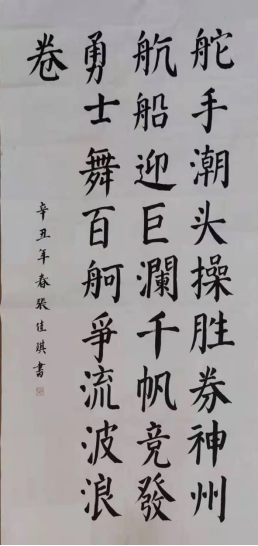 舵手潮头操胜券神州
航船迎巨澜千帆竞發
勇士舞百舸爭流波浪
卷
辛丑年春張佳琪書